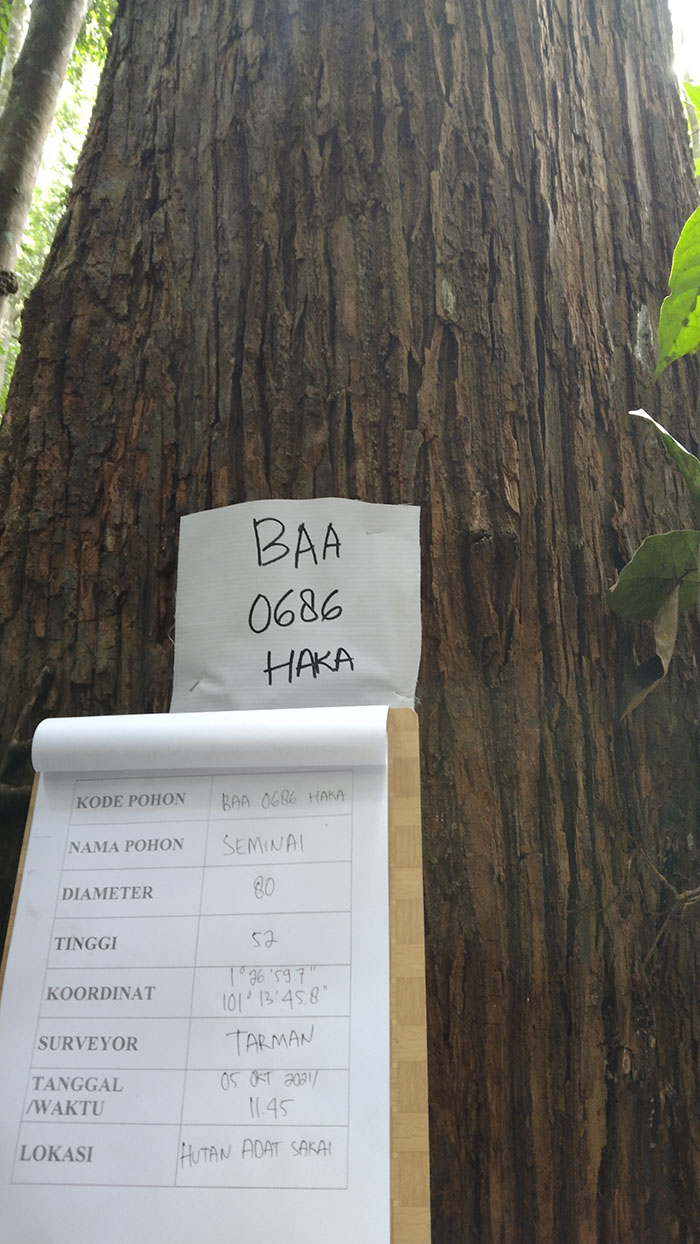 BAA
0686
HAKA
KODE POHON BAA 0686 HAKA
NAMA POHON SEMINAI
DIAMETER 80
TINGGI 52
KOORDINAT 1° 26' 59.7"
101° 13' 45.8"
SURVEYOR TARMAN
TANGGAL 05 OKT 2021/
/WAKTU 11.45
LOKASI HUTAN ADAT SAKAI